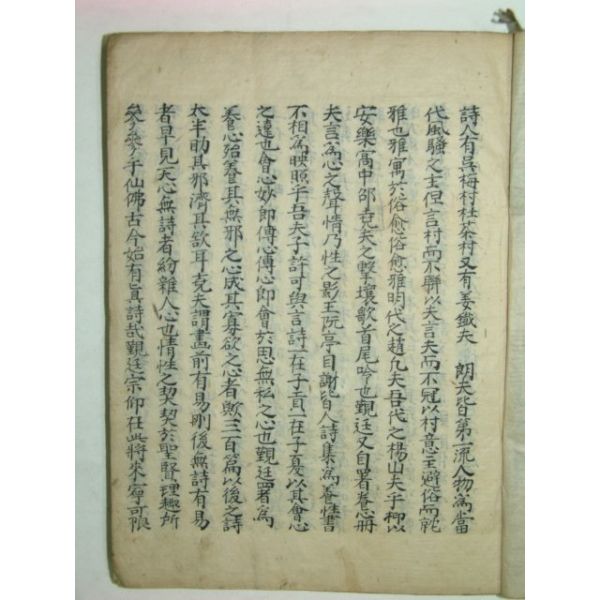 詩人有吳梅村杜茶村又有姜鐵夫 朗夫皆第一流人物爲當
代風騷之主但言村而不聯以夫言夫而不冠以村意主避俗而就
雅也雅寓於俗愈俗愈雅明代之趙凡夫吾代之楊山夫乎抑以
安樂窩中邵堯夫之擊壤歌首尾吟也觀廷又自署養心冊
夫言爲心之聲情乃性之影王阮亭自謝皆人詩集爲養性書
不相爲映照乎吾夫子許可與言詩一在子貢一在子夏以其會心
之遠也會心妙卽傳心傳心卽會於思無私之心也觀廷署爲
養心殆養其無邪之心成其寡欲之心者歟三百篇以後之詩
太半助其邪濟其欲耳堯夫謂畫前有易刪後無詩有易
者早見天心無詩者紛雜人心也情性之契契於聖賢理趣所
參參乎仙佛古今始有眞詩哉觀廷宗仰在此將來寧可限